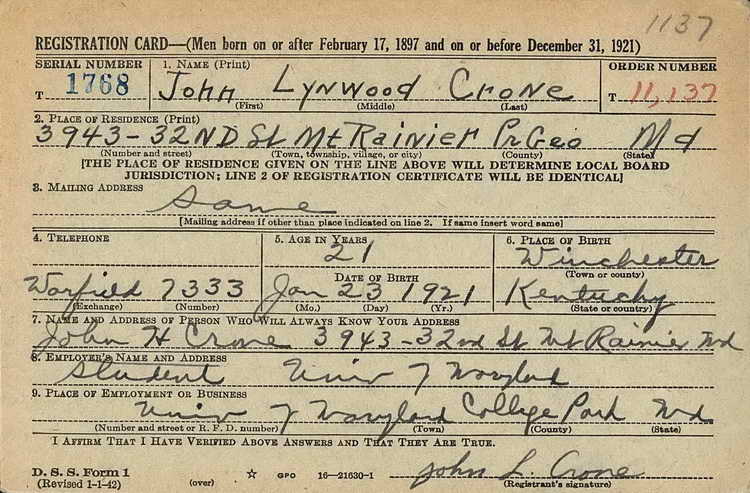 1137
REGISTRATION CARD—(Men born on or after February 17, 1897 and on or before December 31, 1921)
SERIAL NUMBER 1. NAME (Print) ORDER NUMBER
T 1768 John Lynwood Crone T 11,137
(First) (Middle) (Last)
2. PLACE OF RESIDENCE (Print)
3943-32ND St Mt Rainier Pr Geo Md
(Number and street) (Town, township, village, or city) (County) (State)
[THE PLACE OF RESIDENCE GIVEN ON THE LINE ABOVE WILL DETERMINE LOCAL BOARD
JURISDICTION; LINE 2 OF REGISTRATION CERTIFICATE WILL BE IDENTICAL]
3. MAILING ADDRESS
Same
[Mailing address if other than place indicated on line 2. If same insert word same]
4. TELEPHONE 5. AGE IN YEARS 6. PLACE OF BIRTH
21 Winchester
DATE OF BIRTH (Town or county)
Warfield 7333 Jan 23 1921 Kentucky
(Exchange) (Number) (Mo.) (Day) (Yr.) (State or country)
7. NAME AND ADDRESS OF PERSON WHO WILL ALWAYS KNOW YOUR ADDRESS
John H Crone 3943-32nd St Mt Rainier Md
8. EMPLOYER'S NAME AND ADDRESS
Student Univ of Maryland
9. PLACE OF EMPLOYMENT OR BUSINESS
Univ of Maryland College Park Md
(Number and street or R. F. D. number) (Town) (County) (State)
I AFFIRM THAT I HAVE VERIFIED ABOVE ANSWERS AND THAT THEY ARE TRUE.
D. S. S. Form 1
(Revised 1-1-42) (over) GPO 16—21630-1 John L. Crone
(Registrant's signature)